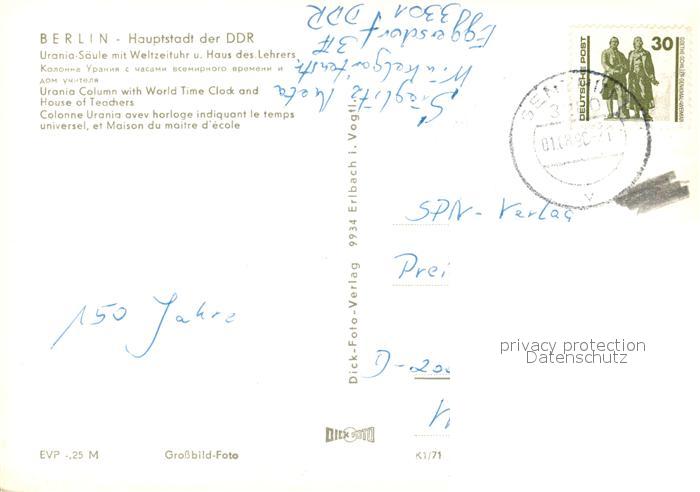 BERLIN - Hauptstadt der DDR
Urania-Säule mit Weltzeituhr u. Haus des Lehrers
Колонна Урания с часами всемирного времени и
дом учителя
Urania Column with World Time Clock and
House of Teachers
Colonne Urania avev horloge indiquant le temps
universel, et Maison du maitre d'école
150 Jahre
EVP -,25 M
Großbild-Foto
Dick-Foto-Verlag 9934 Erlbach i. Vogtl.
DICK FOTO
K1/71
Meta
Eggersdorf
3301 DDR
DEUTSCHE POST
30
SPN-Verlag
Prei
D-200
privacy protection
Datenschutz